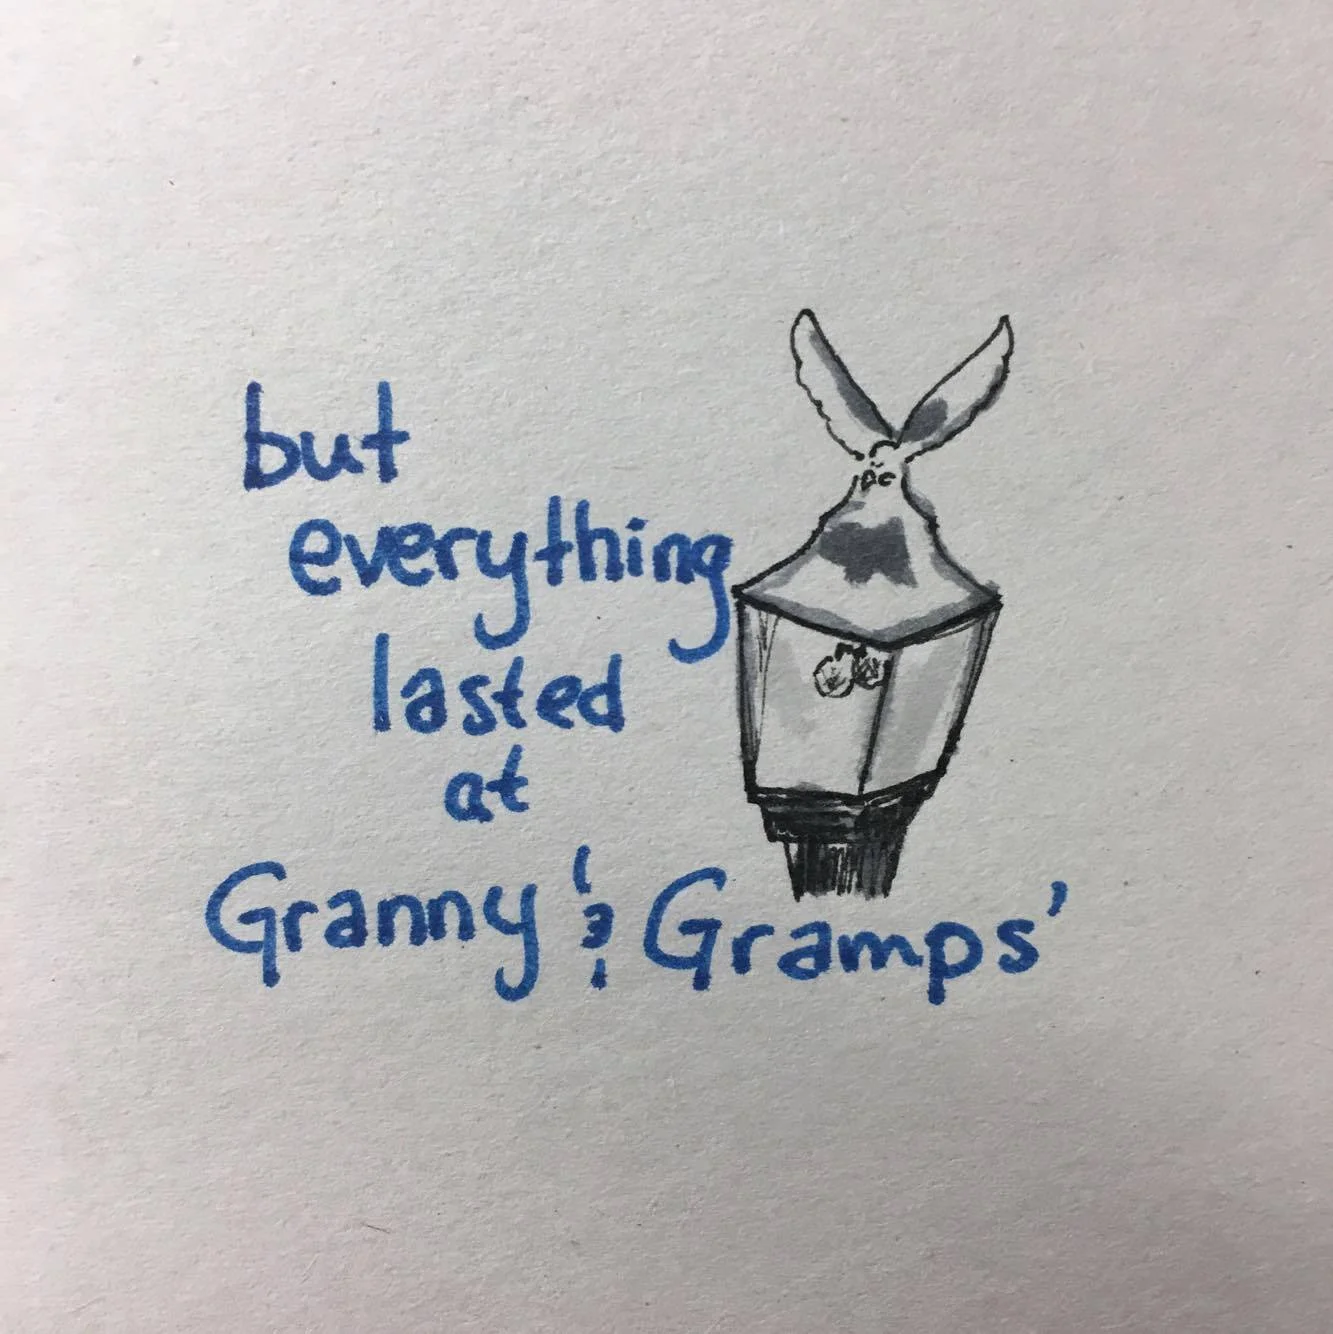 but
everything
lasted
at
Granny & Gramps'